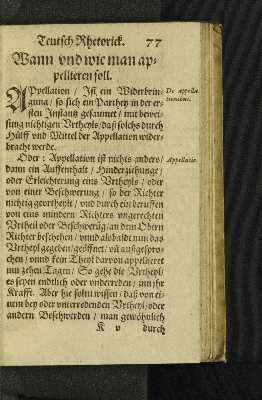 Teutsch Rhetorick. 77
Wann vnd wie man ap-
pellieren soll.
APpellation / Ist ein Widerbrin-
gung / so sich ein Parthey in der er-
sten Instantz gesaumet / mit bewei-
sung nichtigen Vrtheyls / daß solchs durch
Hülff vnd Mittel der Appellation wider-
bracht werde.
De appella-
tionibus.
Oder: Appellation ist nichts anders /
dann ein Auffenthalt / Hinderziehunge /
oder Erleichterung eins Vrtheyls / oder
von einer Beschwerung / so der Richter
nichtig geurtheylt / vnd durch ein beruffen
von eins mindern Richters vngerechten
Vrtheil oder Beschwerūg / an dem Obern
Richter beschehen / vnnd alsbald nun das
Vrtheyl gegeben / geöffnet / vñ außgespro-
chen / vnnd kein Theyl darvon appellieret
inn zehen Tagen / So gehe die Vrtheyl /
es seyen endtlich oder vnderreden / inn jhr
Krafft. Aber hie soltu wissen / daß von ei-
nem bey oder vnterredenden Vrtheyl / oder
andern Beschwerden / man gewöhnlich
Appellatio
K v durch